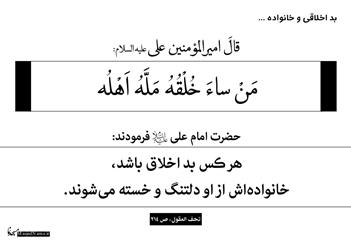 بد اخلاقی و خانواده ...
قالَ امیرالمؤمنین علی علیه السلام:
مَنْ ساءَ خُلْقُهُ مَلَّهُ اَهْلُه
حضرت امام علی علیه‌السلام فرمودند:
هر کس بد اخلاق باشد،
خانواده‌اش از او دلتنگ و خسته می‌شوند.
تحف العقول، ص ۲۱٤